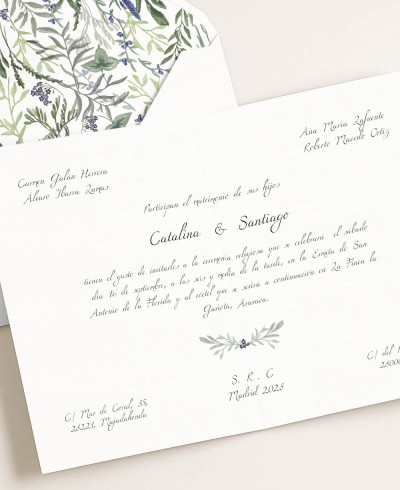 Carmen Galán Herrera
Álvaro Ibarra Zamas
Ana María Lafuente
Roberto Macede Ortiz
Participan el matrimonio de sus hijos
Catalina & Santiago
tienen el gusto de invitarles a la ceremonia religiosa que se celebrará el sábado
día 16 de septiembre, a las seis y media de la tarde, en la Ermita de San
Antonio de la Florida y al cóctel que se será a continuación en La Finca la
Gaviota, Aravaca.
S. R. C
Madrid 2028
C/ Mar de Coral, 38,
28221, Majadahonda
C/ del
2800